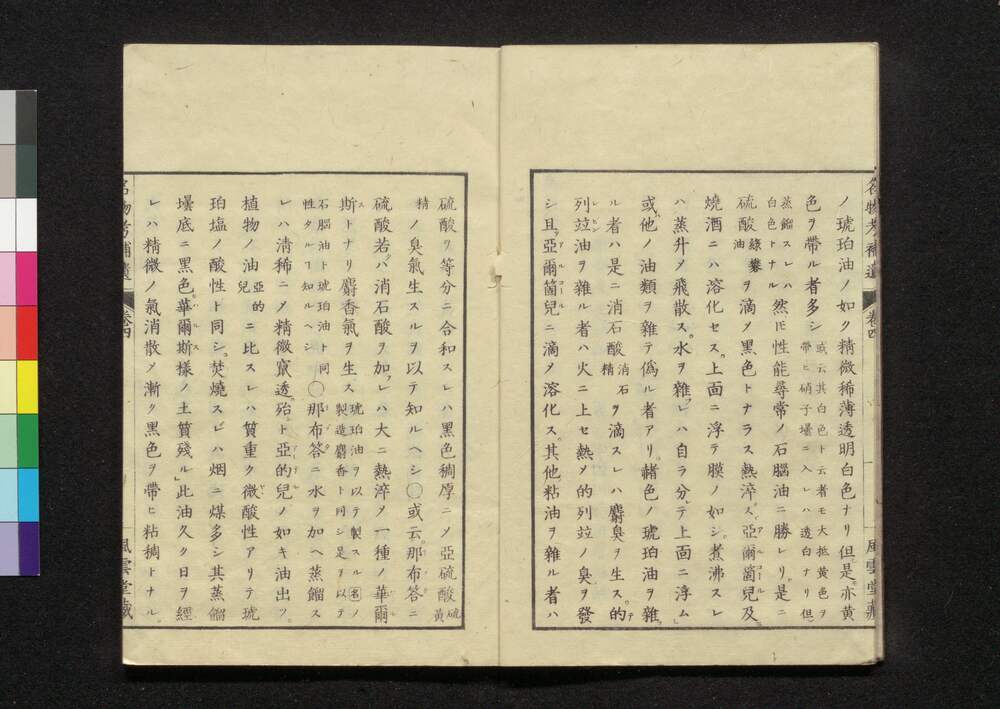 ノ琥珀油ノ如ク精微稀薄透明白色ナリ但是亦黄
色ヲ帶ル者多シ 或云其白色ト云者モ大抵黄色ヲ帶ヒ硝子壜ニ入レハ透白ナリ但
蒸餾スレハ白色トナル 然𪜈性能尋常ノ石腦油ニ勝レリ是ニ
硫酸 綠礬油 ヲ滴メ黒色トナラス熱淬ス亞爾箇兒及
燒酒ニハ溶化セス上面ニ浮テ膜ノ如シ煮沸スレ
ハ蒸升メ飛散ス水ヲ雜レハ自ラ分テ上面ニ浮ム
或他ノ油類ヲ雜テ僞ル者アリ赭色ノ琥珀油ヲ雜
ル者ハ是ニ消石酸 消石精 ヲ滴スレハ麝臭ヲ生ス的
列竝油ヲ雜ル者ハ火ニ上セ熱メ的列竝ノ臭ヲ發
シ且亞爾箇兒ニ滴メ溶化ス其他粘油ヲ雜ル者ハ
名物考補遺 卷四 風雲堂藏
硫酸ヲ等分ニ合和スレハ黒色稠厚ニメ亞硫酸 硫黄
精 ノ臭氣生スルヲ以テ知ルヘシ○或云那布答ニ
硫酸若ハ消石酸ヲ加レハ大ニ熱淬メ一種ノ華爾
斯トナリ麝香氣ヲ生ス 琥珀油ヲ以テ製スル名ノ製造麝香ト同シ是ヲ以テ
石腦油ト琥珀油ト同性タルヿ知ルヘシ ○那布答ニ水ヲ加ヘ蒸餾ス
レハ清稀ニメ精微竄透殆ト亞的兒ノ如キ油出ツ
植物ノ油 亞的兒 ニ比スレハ質重ク微酸性アリテ琥
珀塩ノ酸性ト同シ焚燒スレハ烟ニ煤多シ其蒸餾
壜底ニ黒色華爾斯樣ノ土質殘ル」此油久ク日ヲ經
レハ精微ノ氣消散メ漸ク黒色ヲ帶ヒ粘稠トナル
名物考補遺 卷四 風雲堂藏